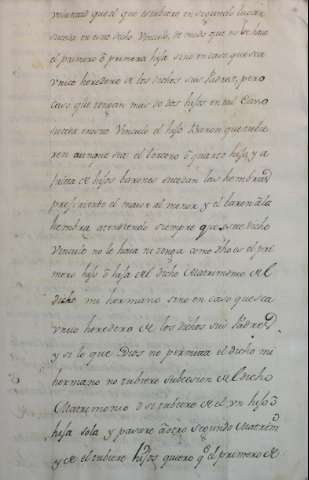 voluntad que el que estubiere en segundo lugar
suceda en este dicho Vinculo, de modo que no le haia
el primero ò primera hija sino en caso que sea
vnico heredero de los dichos sus Padres, pero
caso que tengan mas de dos hijos en tal caso
suceda en este Vinculo el hijo Baron que tubie
ren aunque sea el tercero ò quarto hijo, y a
falta de hijos barones sucedan las hembras
prefiriendo el maior al menor y el baron à la
hembra atendiendo siempre que este dicho
Vinculo no le haia ni tenga como dho es el pri
mero hijo ò hija del dicho Matrimonio del
dicho mi hermano sino en caso que sea
vnico heredero de los dichos sus Padres
y si lo que Dios no permita el dicho mi
hermano no tubiere subcesion del dicho
Matrimonio ò si tubiere de el vn hijo ò
hija sola y pasare à otro segundo Matrimo
y de el tubiere hijos quiero qe el primero de